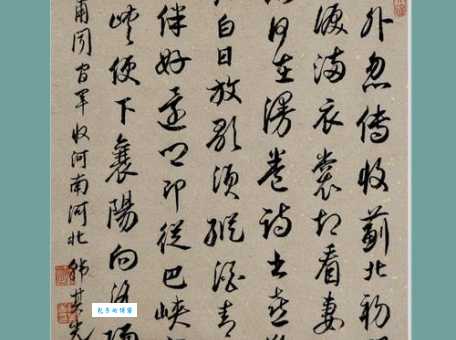 外忽傳收薊北初
淚滿衣裳却看妻
何在漫卷詩書喜
白日放歌須縱酒青
伴好還鄉即從巴峽
峽便下襄陽向洛陽
甫聞官軍收河南河北